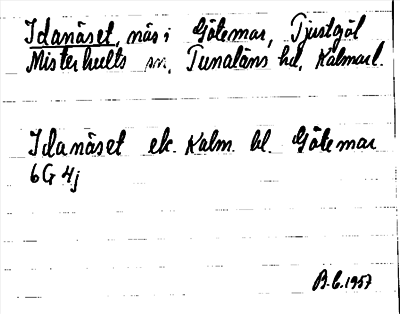 Idanäset, näs i Götemar, Tjustgöl
Misterhults sn, Tunaläns hd, Kalmar l.
Idanäset ek. Kalm. bl. Götemar
6G 4j
B.G. 1957